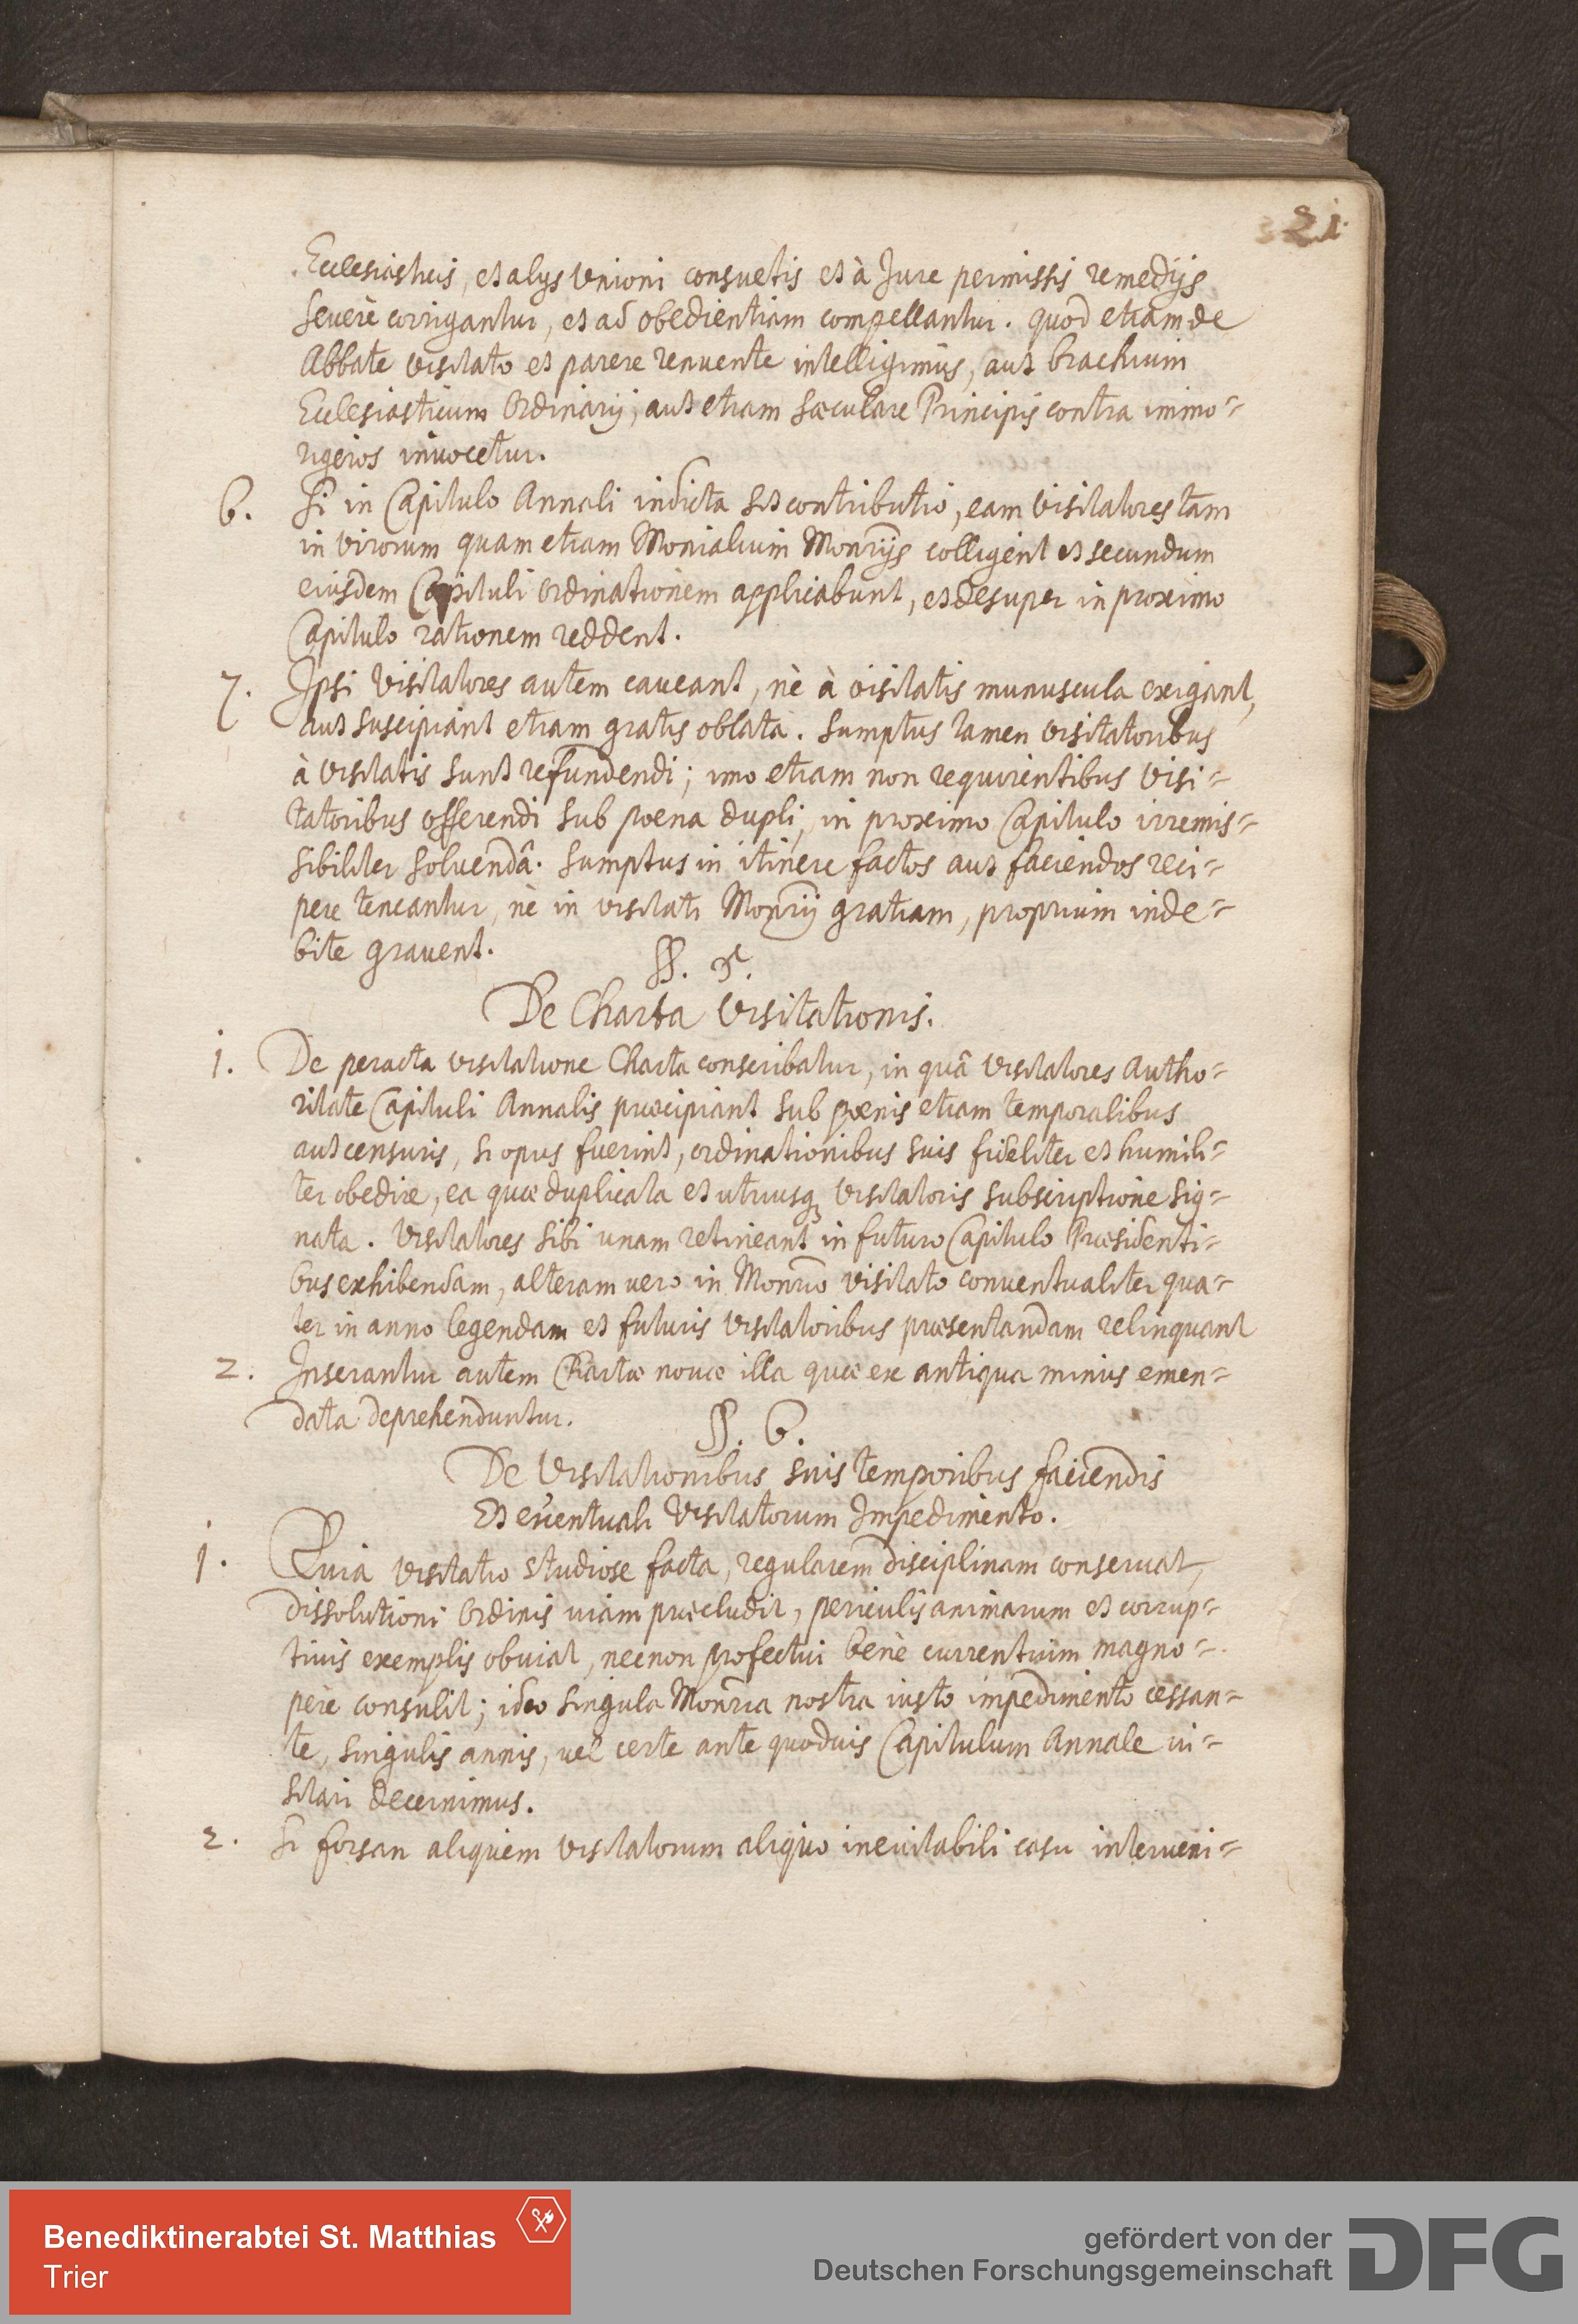 21.
Ecclesiasticis, et alijs Unioni consuetis et à Jure permissis remedijs
severè corrigantur, et ad obedientiam compellantur. quod etiam de
Abbate visitato et parere renuente intelligimus, aut brachium
Ecclesiasticum Ordinarij, aut etiam sæculare Principis contra immo=
rigeros invocetur.
6. Si in Capitulo Annali indicta sit contributio, eam Visitatores tam
in virorum quam etiam Monialium Monrijs colligent et secundum
eiusdem Capituli ordinationem applicabunt, et desuper in proximo
Capitulo rationem reddent.
7. Ipsi Visitatores autem caveant, nè à visitatis munuscula exigant,
aut suscipiant etiam gratis oblata. Sumptus tamen visitatoribus
à visitatis sunt refundendi; imo etiam non requirentibus visi=
tatoribus offerendi sub poena dupli, in proximo Capitulo irremis=
sibiliter solvendâ. Sumptus in itinere factos aut faciendos reci=
pere teneantur, nè in visitati Monrij gratiam, proprium inde=
bite gravent.
§§. 5.
De Charta Visitationis.
1. De peracta visitatione Charta conscribatur, in quâ visitatores Autho=
ritate Capituli Annalis præcipiant sub poenis etiam temporalibus
aut censuris, si opus fuerint, ordinationibus suis fideliter et humili=
ter obedire, ea quæ duplicata et utriusq visitatoris subscriptione sig=
nata. Visitatores sibi unam retineant in futuro Capitulo Præsidenti=
bus exhibendam, alteram vero in Monrio visitato conventualiter qua=
ter in anno legendam et futuris visitatoribus præsentandam relinquant
2. Inserantur autem Chartæ novæ illa quæ ex antiqua minus emen=
data deprehenduntur.
§§. 6.
De Visitationibus suis temporibus faciendis
Et eventuali Visitatorum Impedimento.
1. Quia visitatio studiose facta, regularem disciplinam conservat,
dissolutioni Ordinis viam præcludit, periculis animarum et corrup=
tivis exemplis obviat, necnon profectui benè currentium magno=
perè consulit; ideo singula Monria nostra iusto impedimento cessan=
te, singulis annis, vel certe ante quodvis Capitulum Annale vi=
sitari decernimus.
2. Si forsan aliquem visitatorum aliquo inevitabili casu interveni=
Benediktinerabtei St. Matthias
Trier
gefördert von der
Deutschen Forschungsgemeinschaft
DFG